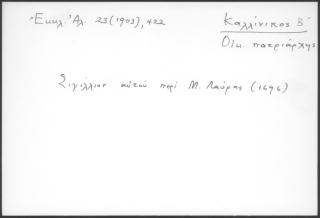 Ἐκκλ. Ἀλ. 23 (1903), 422
Καλλίνικος Β΄
Οἰκ. πατριάρχης
Σιγίλλιον αὐτοῦ περὶ Μ. Λαύρας (1696)